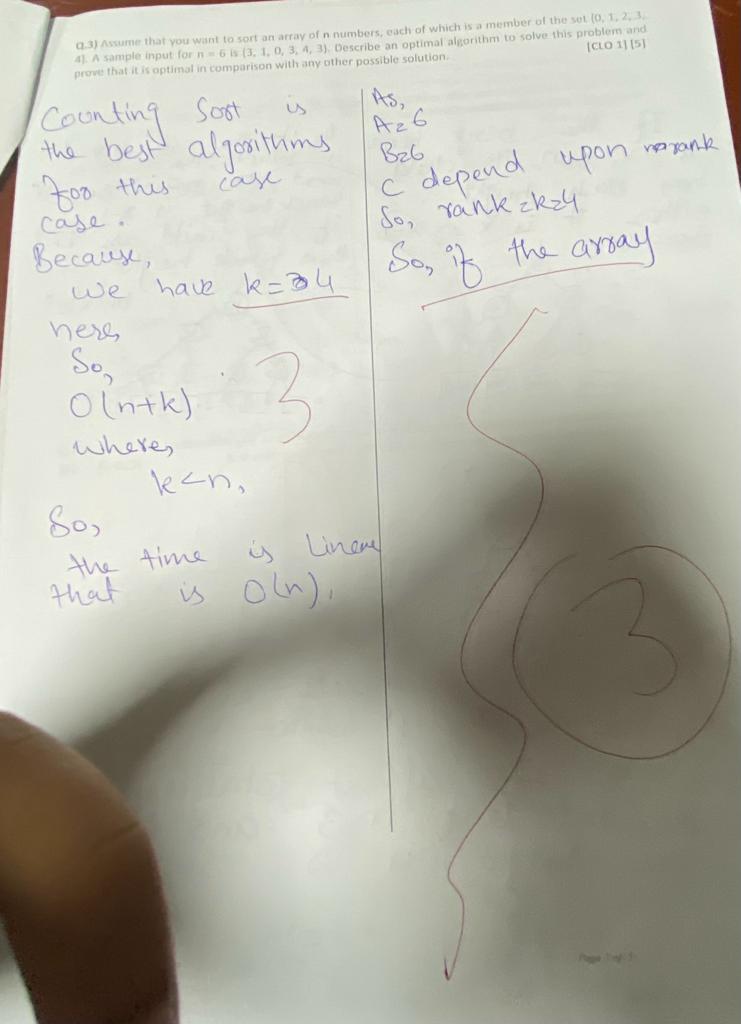 Q.3) Assume that you want to sort an array of n numbers, each of which is a member of the set {0, 1, 2, 3,
4}. A sample input for n = 6 is {3, 1, 0, 3, 4, 3}. Describe an optimal algorithm to solve this problem and
prove that it is optimal in comparison with any other possible solution.
[CLO 1] [5]
Counting Sort is
the best algorithms
for this case
case.
Because,
we have k=4
here,
So,
O(n+k)
where,
k<n,
So,
the time is Linear
that is O(n).
3
As,
A=6
B=6
C depend upon rank
So, rank=k=4
So, if the array
3